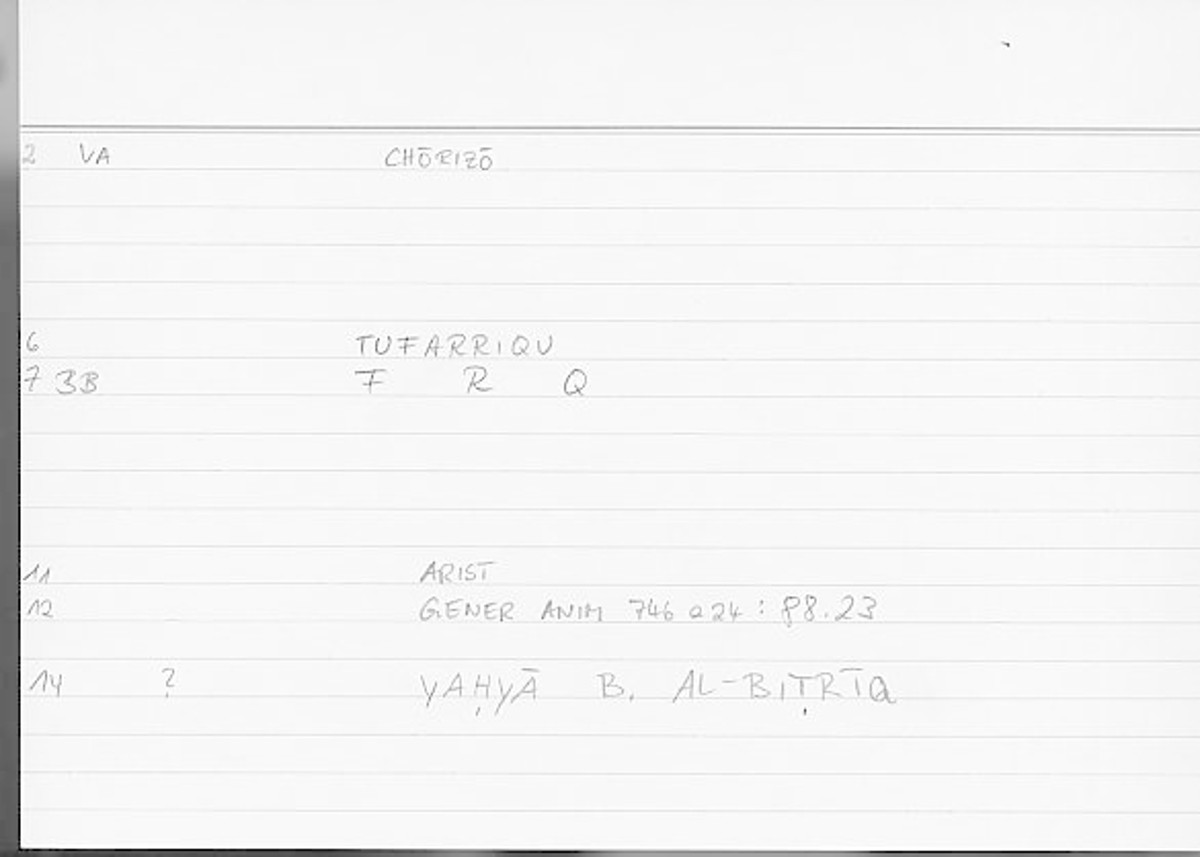 2 VA CHŌRIZŌ
6 TUFARRIQU
7 3B F R Q
11 ARIST
12 GENER ANIM 746 a 24 : 88.23
14 ? YAḤYĀ B. AL-BIṬRĪQ